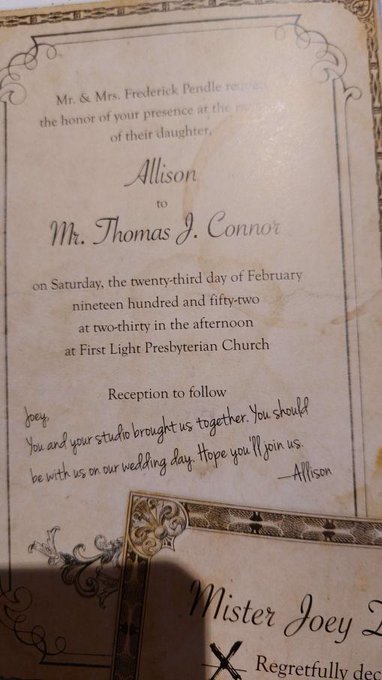 Mr. & Mrs. Frederick Pendle
the honor of your presence at the
of their daughter,
Allison
to
Mr. Thomas J. Connor
on Saturday, the twenty-third day of February
nineteen hundred and fifty-two
at two-thirty in the afternoon
at First Light Presbyterian Church
Reception to follow
Joey,
You and your studio brought us together. You should
be with us on our wedding day. Hope you'll join us.
—Allison
Mister Joey
X Regretfully